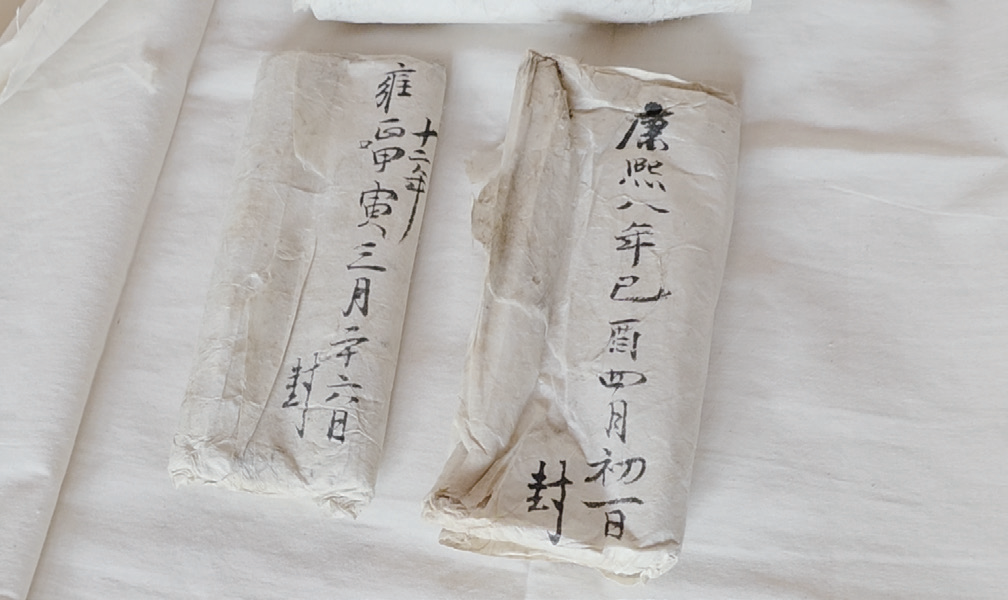 康熙八年己酉四月初一日
封
雍正甲寅三月二十六日
十二年
封